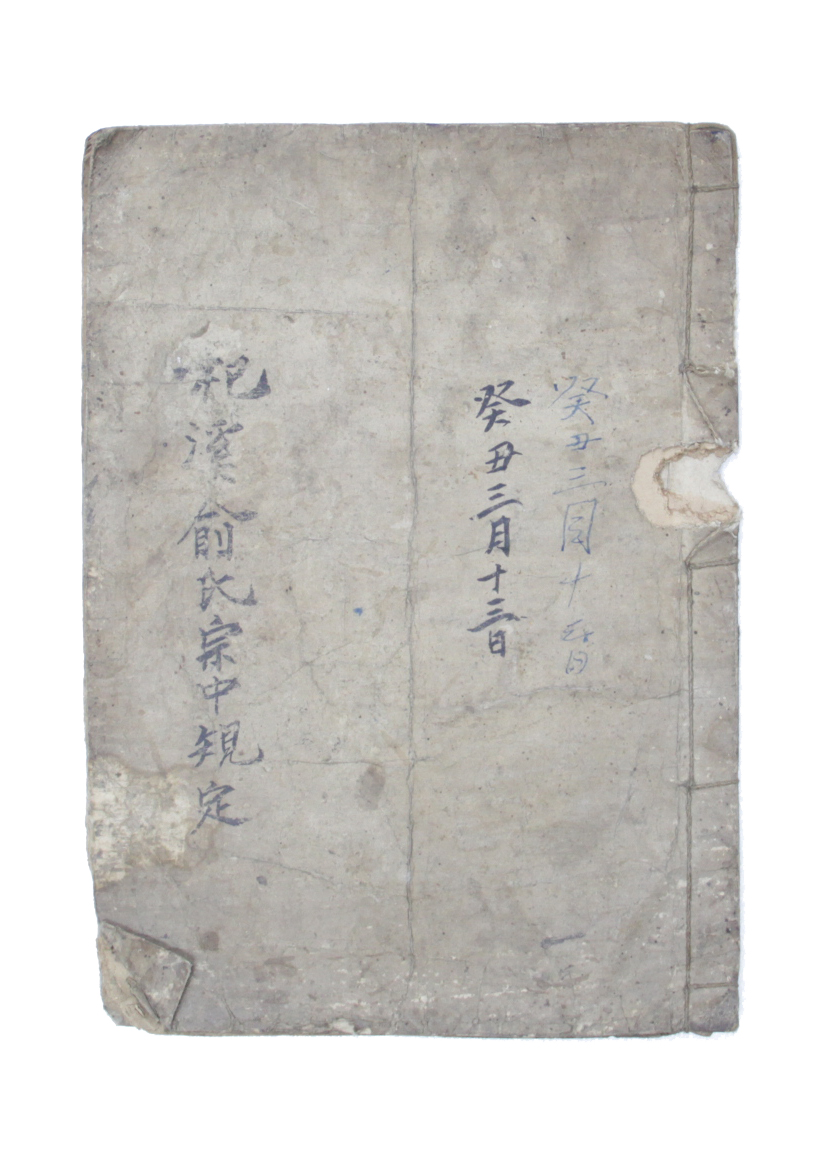 癸丑三月十三日
癸丑三月十三日
杞溪俞氏宗中規定